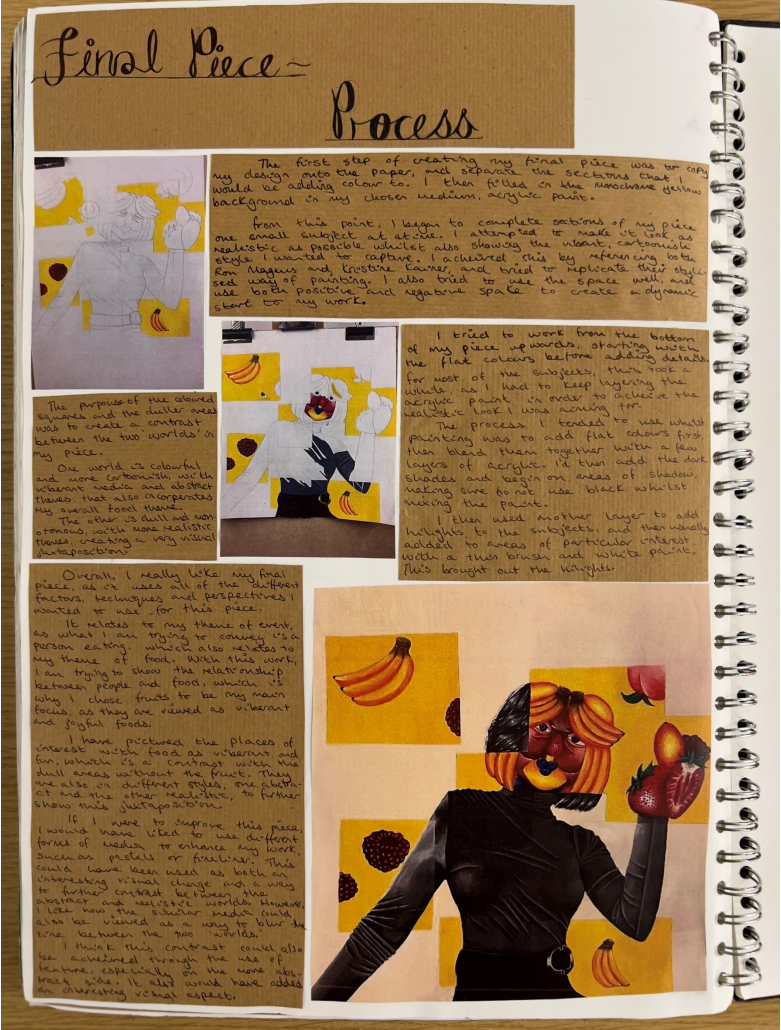 Final Piece~
Process
The first step of creating my final piece was to copy
my design onto the paper, and separate the sections that I
would be adding colour to. I then filled in the monochrome yellow
background in my chosen medium, acrylic paint.
From this point, I began to complete sections of my piece
one small subject at atime. I attempted to make it look as
realistic as possible whilst also showing the vibrant, cartoonish
style I wanted to capture. I acheived this by referencing both
Ron Magnus and Kristine Kainer, and tried to replicate their styli-
sed way of painting. I also tried to use the space well, and
use both positive and negative space to create a dynamic
start to my work.
The purpouse of the coloured
squares and the duller areas
was to create a contrast
between the two worlds in
my piece.
One world is colourful
and more cartoonish, with
viberant media and abstract
themes, that also incorperates
my overall food theme.
The other is dull and mon-
otonous, with more realistic
themes, creating a very visual
juxtaposition.
I tried to work from the bottom
of my piece upwards, starting with
the flat colours before adding details.
For most of the subjects, this took a
while, as I had to keep layering the
acrylic paint in order to acheive the
realistic look I was aiming for.
The process I tended to use whilst
painting was to add flat colours first,
then blend them together with a few
layers of acrylic. I'd then add the dark
shades and begin on areas of shadow,
making sure to not use black whilst
mixing the paint.
I then used another layer to add
hilights to the subjects, and then usually
added to areas of particular interest
with a thin brush and white paint.
This brought out the hilights.
Overall, I really like my final
piece, as it uses all of the different
factors, techniques and perspectives I
wanted to use for this piece.
It relates to my theme of event,
as what I am trying to convey is a
person eating. which also relates to
my theme of food. With this work,
I am trying to show the relationship
between people and food, which is
why I chose fruits to be my main
focus, as they are viewed as viberant
and joyful foods.
I have pictured the places of
interest with food as viberant and
fun, which is a contrast with the
dull areas without the fruit. They
are also in different styles, one abstra-
ct and the other realistic, to further
show this juxtaposition.
If I were to improve this piece,
I would have liked to use different
forms of media to enhance my work,
such as pastels or fineliner. This
could have been used as both an
interesting visual change and a way
to further contrast between the
abstract and realistic worlds. However,
I like how the similar media could
also be viewed as a way to blur the
line between the two 'worlds.'
I think this contrast could also
be acheived through the use of
texture, especially on the more abs-
tract side. It also would have added
an interesting visual aspect.